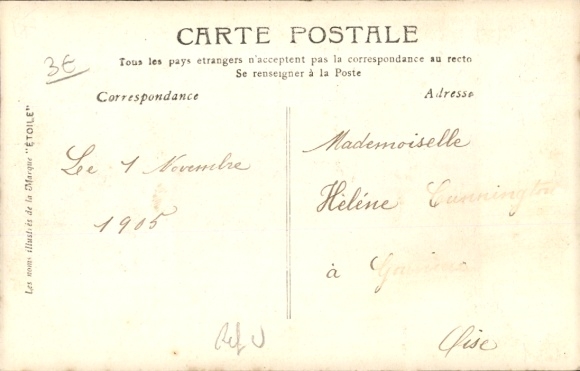 CARTE POSTALE
Tous les pays etrangers n'acceptent pas la correspondance au recto
Se renseigner à la Poste
3€
Correspondance
Adresse
Les noms illustrés de la Marque "ÉTOILE"
Le 1 Novembre
1905
Mademoiselle
Hèléne Cunnington
à
Oise
Ref U